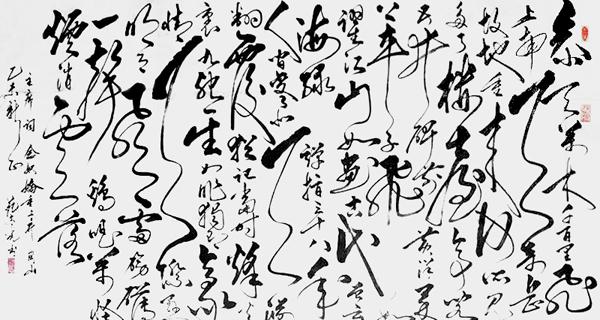 参天万木千百里飞
上南天奇岳
故地重来何所见
多了楼台亭阁
五井碑前黄洋界
上车子飞如
跃江山如画古代曾云
海绿弹指三十八年
人间变了似天渊
翻覆犹记当时烽火
里九死一生如昨独有豪
情天际悬
明月风雷磅礴
一声鸡唱万怪
烟消云落
主席词念奴娇井冈山
乙未新正